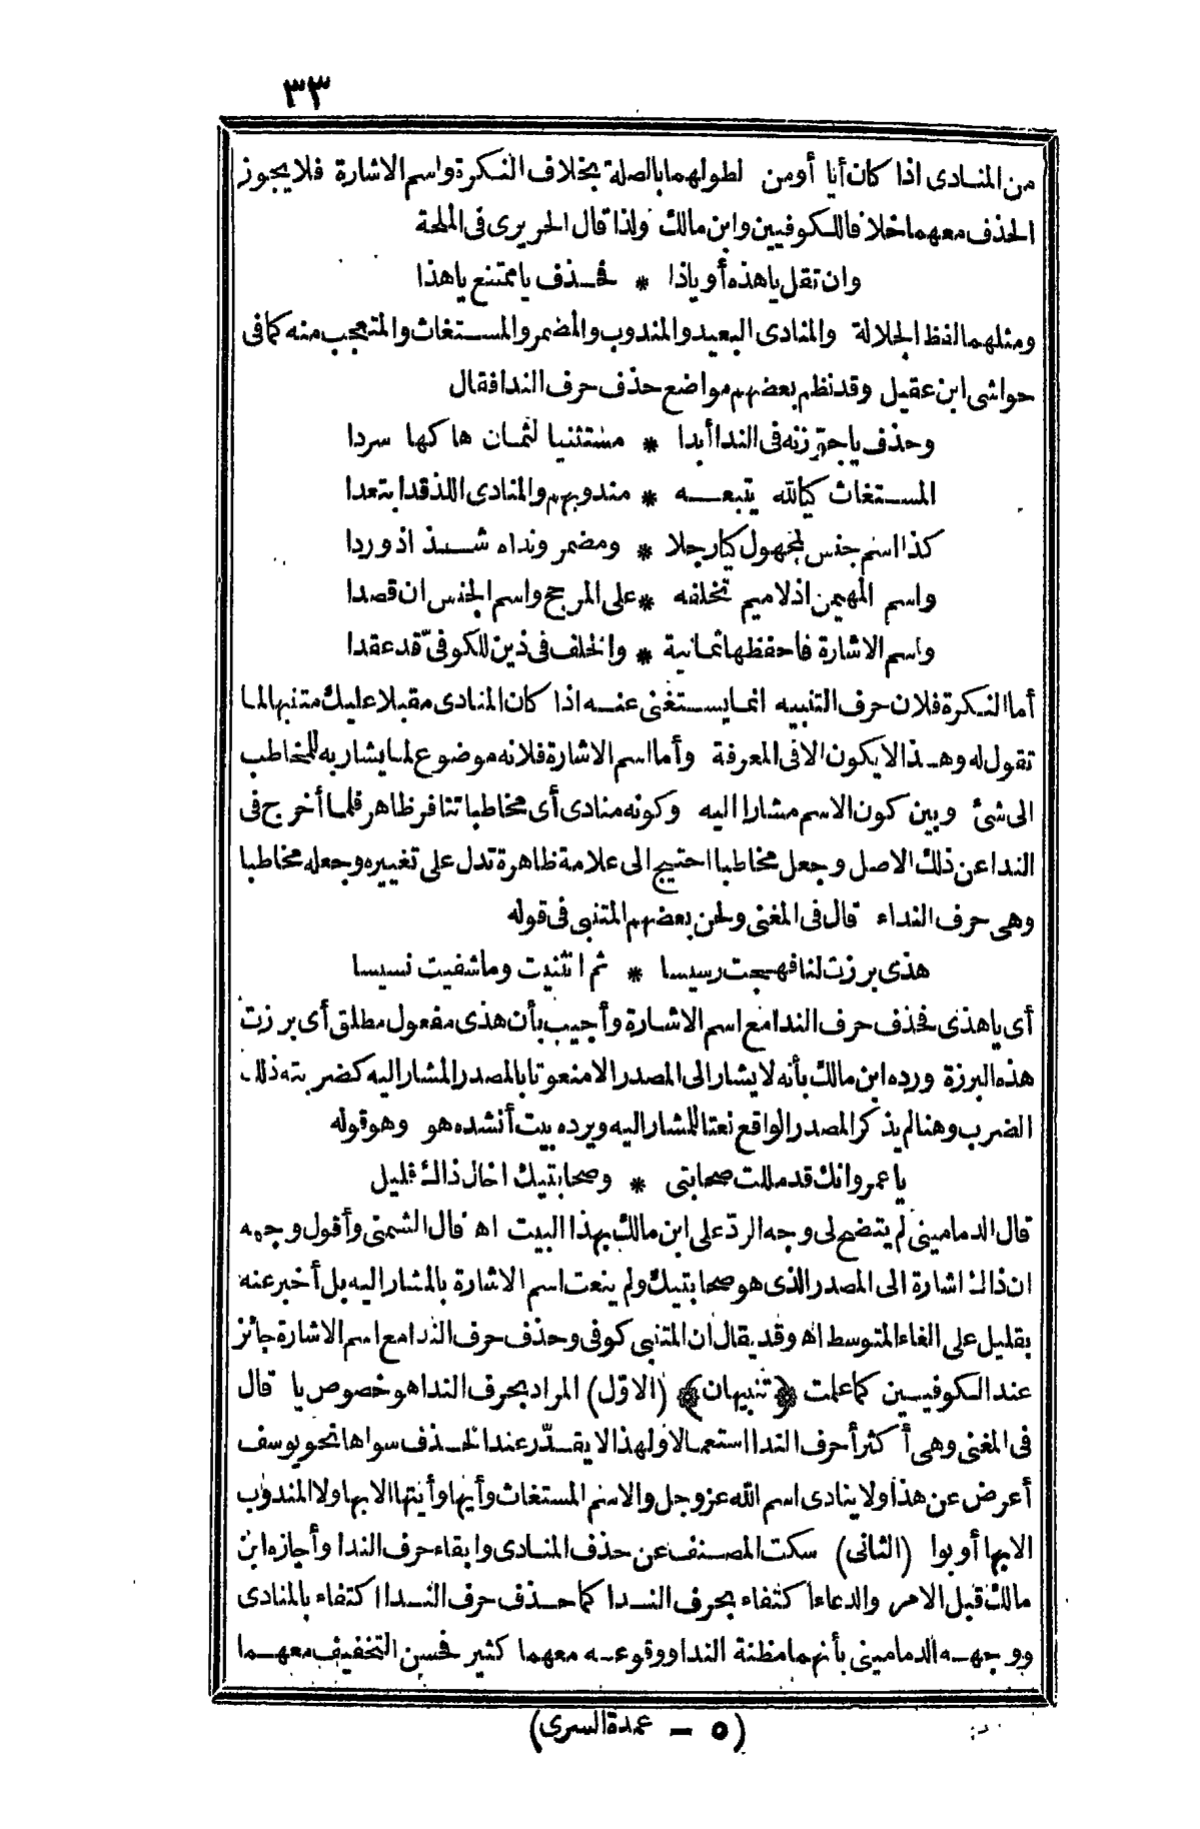 ٣٣
من المنادى اذا كان أيا أو من لطولهما بالصلة بخلاف النكرة واسم الاشارة فلا يجوز
الحذف معهما خلافا للكوفيين وابن مالك ولذا قال الحريرى فى الملحة
وان تقل يا هذه أو ياذا * فحذف يا ممتنع يا هذا
ومثلهما لفظ الجلالة والمنادى البعيد والمندوب والمضمر والمستغاث والمتعجب منه كما فى
حواشى ابن عقيل وقد نظم بعضهم مواضع حذف حرف الندا فقال
وحذف يا جوّزنه فى الندا أبدا * مستثنيا لثمان هاكها سردا
المستغاث كيالله يتبعه * مندوبهم والمنادى اللذ قد ابتعدا
كذا اسم جنس لمجهول كيا رجلا * ومضمر ونداه شذ اذ وردا
واسم المهيمن اذ لا ميم تخلفه * على المرجح واسم الجنس ان قصدا
واسم الاشارة فاحفظها ثمانية * والخلف فى ذين للكوفىّ قد عقدا
أما النكرة فلان حرف التنبيه انما يستغنى عنه اذا كان المنادى مقبلا عليك متنبها لما
تقول له وهذا لا يكون الا فى المعرفة وأما اسم الاشارة فلانه موضوع لما يشار به للمخاطب
الى شئ وبين كون الاسم مشارا اليه وكونه منادى أى مخاطبا تنافر ظاهر فلما أخرج فى
الندا عن ذلك الاصل وجعل مخاطبا احتيج الى علامة ظاهرة تدل على تغييره وجعله مخاطبا
وهى حرف النداء قال فى المغنى ولحن بعضهم المتنبى فى قوله
هذى برزت لنا فهجت رسيسا * ثم انثنيت وما شفيت نسيسا
أى يا هذى فحذف حرف الندا مع اسم الاشارة وأجيب بأن هذى مفعول مطلق أى برزت
هذه البرزة ورده ابن مالك بأنه لا يشار الى المصدر الا منعوتا بالمصدر المشار اليه كضربته ذلك
الضرب وهنا لم يذكر المصدر الواقع نعتا للمشار اليه ويرده بيت أنشده هو وهو قوله
يا عمرو انك قد مللت صحابتى * وصحابتيك اخال ذاك قليل
قال الدمامينى لم يتضح لى وجه الردّ على ابن مالك بهذا البيت اه قال الشمنى وأقول وجهه
ان ذاك اشارة الى المصدر الذى هو صحابتيك ولم ينعت اسم الاشارة بالمشار اليه بل أخبر عنه
بقليل على الغاء المتوسط اه وقد يقال ان المتنبى كوفى وحذف حرف الندا مع اسم الاشارة جائز
عند الكوفيين كما علمت ﴿تنبيهان﴾ (الاوّل) المراد بحرف الندا هو خصوص يا قال
فى المغنى وهى أكثر أحرف الندا استعمالا ولهذا لا يقدّر عند الحذف سواها نحو يوسف
أعرض عن هذا ولا ينادى اسم الله عز وجل والاسم المستغاث وأيها وأيتها الا بها ولا المندوب
الا بها أو بوا (الثانى) سكت المصنف عن حذف المنادى وابقاء حرف الندا وأجازه ابن
مالك قبل الامر والدعاء اكتفاء بحرف الندا كما حذف حرف الندا اكتفاء بالمنادى
ووجهه الدمامينى بأنهما مظنة الندا ووقوعه معهما كثير فحسن التخفيف معهما
(٥ – عمدة السرى)